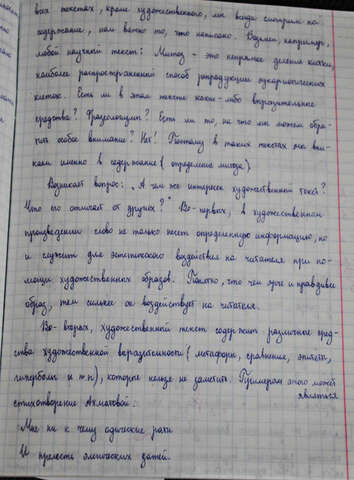 всех текстах, кроме художественного, мы всегда смотрим на
содержание, нам важно то, что написано. Возьмем, например,
любой научный текст: Митоз - это непрямое деление клетки,
наиболее распространенный способ репродукции эукариотических
клеток. Есть ли в этом тексте какие-либо выразительные
средства? Фразеологизмы? Есть ли то, на что мы можем обра-
тить особое внимание? Нет! Поэтому в таких текстах мы вни-
каем именно в содержание (определение митоза)
Возникает вопрос: "А чем же интересен художественный текст?
Что его отличает от других?" Во-первых, в художественном
произведении слово не только несет определенную информацию, но
и служит для эстетического воздействия на читателя при по-
мощи художественных образов. Понятно, что чем ярче и правдивее
образ, тем сильнее он воздействует на читателя.
Во-вторых, художественный текст содержит различные сред-
ства художественной выразительности (метафоры, сравнение, эпитеты,
гиперболы и т.п), которые нельзя не заметить. Примером этого может
являться
стихотворение Ахматовой:
Мне ни к чему одические рати
И прелесть элегических затей.